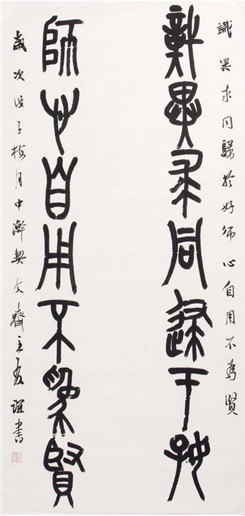 識異求同歸於好師心自用不為賢
識異求同歸于好
師心自用不為賢
歲次戊子梅月中澣契文齋主書